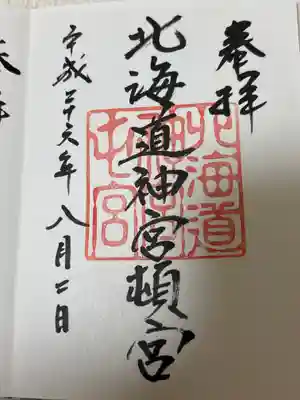 奉拝
北海道神宮頓宮
平成二十六年八月二日
北海道